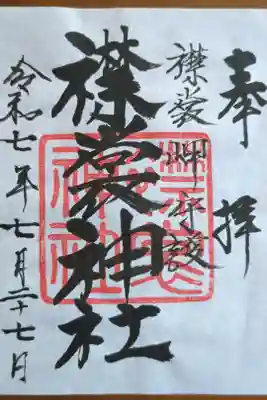 奉拝
襟裳岬守護
襟裳神社
令和七年七月二十七日
襟裳
神社